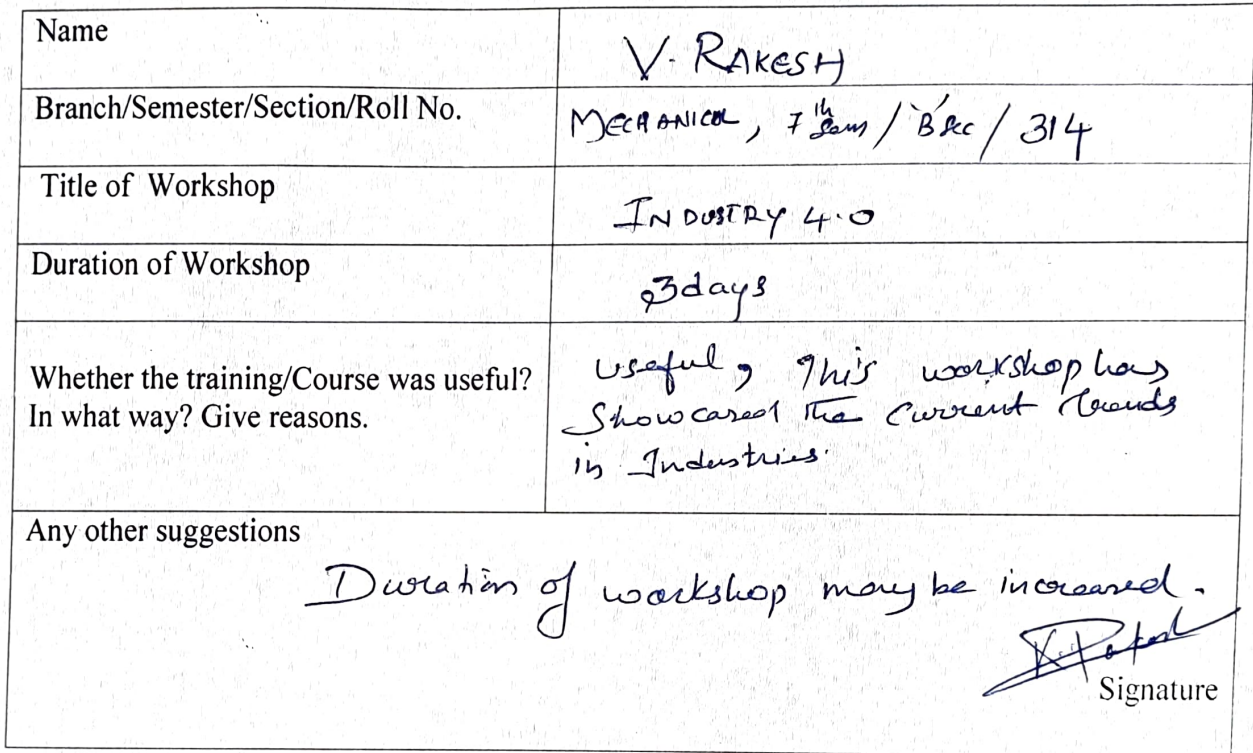 Name
V. RAKESH
Branch/Semester/Section/Roll No.
MECHANICAL, 7th Sem / 'B' Sec / 314
Title of Workshop
INDUSTRY 4.0
Duration of Workshop
3days
Whether the training/Course was useful?
In what way? Give reasons.
Useful, This workshop has
Showcased the Current trends
in Industries.
Any other suggestions
Duration of workshop may be increased.
Signature